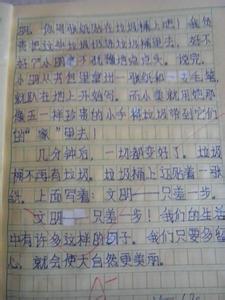 明，你用张纸贴在垃圾桶上吧！我负
责把这些垃圾扔垃圾桶里去，好不
好？”小明 不犹豫地点点头。说完，
小明从书包里拿出一张纸和一支毛笔
就趴在地上开始写。而小美就用她那
像玉一样珍贵的小手将垃圾带到它们
的“家”里去！
几分钟后，一切都变好了。垃圾
桶不再有垃圾。垃圾桶上还贴着一张
纸。上面写着：文明——只差一步。
文明——只差一步！我们的生活
中有许多这样的例子。我们只要多留
心，就会使大自然更美丽。